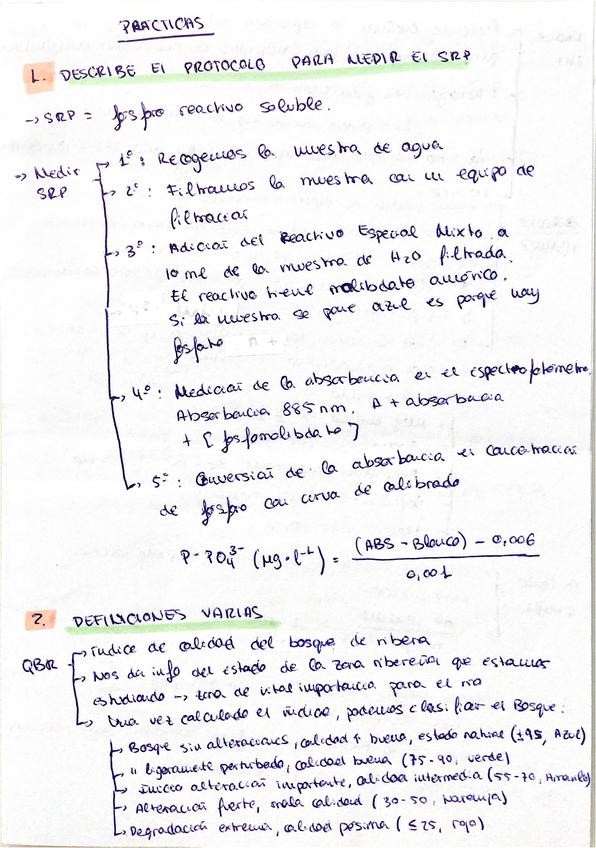 PRÁCTICAS
1. DESCRIBE El PROTOCOLO PARA MEDIR El SRP
→ SRP = fósforo reactivo soluble.
→ Medir SRP
1º: Recogemos la muestra de agua
2º: Filtramos la muestra con un equipo de
filtración
3º: Adición del Reactivo Especial Mixto a
10 ml de la muestra de H2O filtrada.
El reactivo tiene molibdato amónico.
Si la muestra se pone azul es porque hay
fosfato
4º: Medición de la absorbancia en el espectrofotómetro.
Absorbancia 885 nm. A + absorbancia
+ [fosfomolibdato]
5º: Conversión de la absorbancia en concentración
de fósforo con curva de calibrado
P-PO4³⁻ (µg·l⁻¹) = (ABS - Blanco) - 0,006
0,001
2. DEFINICIONES VARIAS
QBR
→ Índice de calidad del bosque de ribera
→ Nos da info del estado de la zona ribereña que estamos
estudiando → zona de vital importancia para el río
→ Una vez calculado el índice, podemos clasificar el Bosque:
→ Bosque sin alteraciones, calidad ↑ buena, estado natural (≥95, Azul)
→ " ligeramente perturbado, calidad buena (75-90, verde)
→ Inicio alteración importante, calidad intermedia (55-70, Amarillo)
→ Alteración fuerte, mala calidad (30-50, Naranja)
→ Degradación extrema, calidad pésima (≤25, rojo)